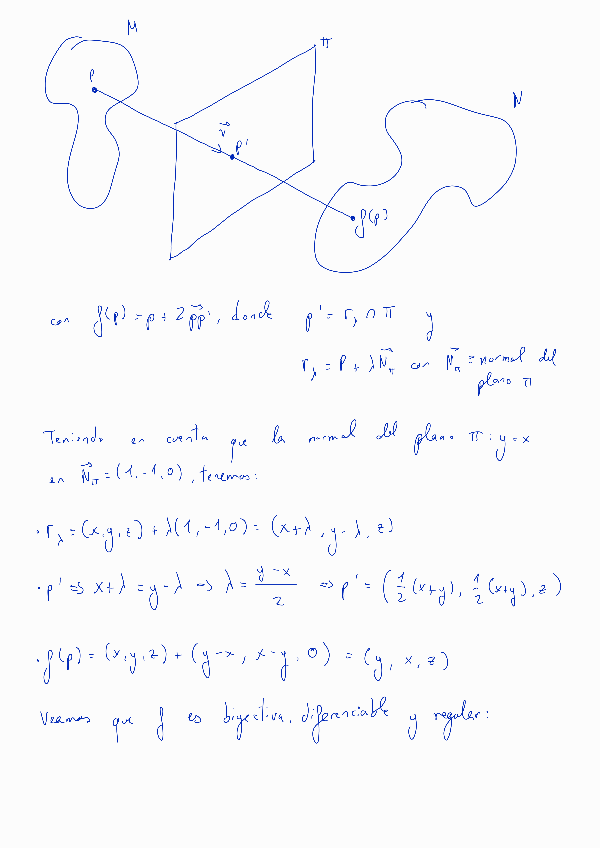 M
π
N
p
v⃗
p'
f(p)
con f(p) = p + 2 pp'⃗, donde p' = r_λ ∩ π y
r_λ = P + λN⃗_π con N⃗_π = normal del
plano π
Teniendo en cuenta que la normal del plano π: y = x
es N⃗_π = (1, -1, 0), tenemos:
· r_λ = (x, y, z) + λ(1, -1, 0) = (x+λ, y-λ, z)
· p' => x+λ = y-λ => λ = (y-x)/2 => p' = (1/2 (x+y), 1/2 (x+y), z)
· f(p) = (x, y, z) + (y-x, x-y, 0) = (y, x, z)
Veamos que f es biyectiva, diferenciable y regular: